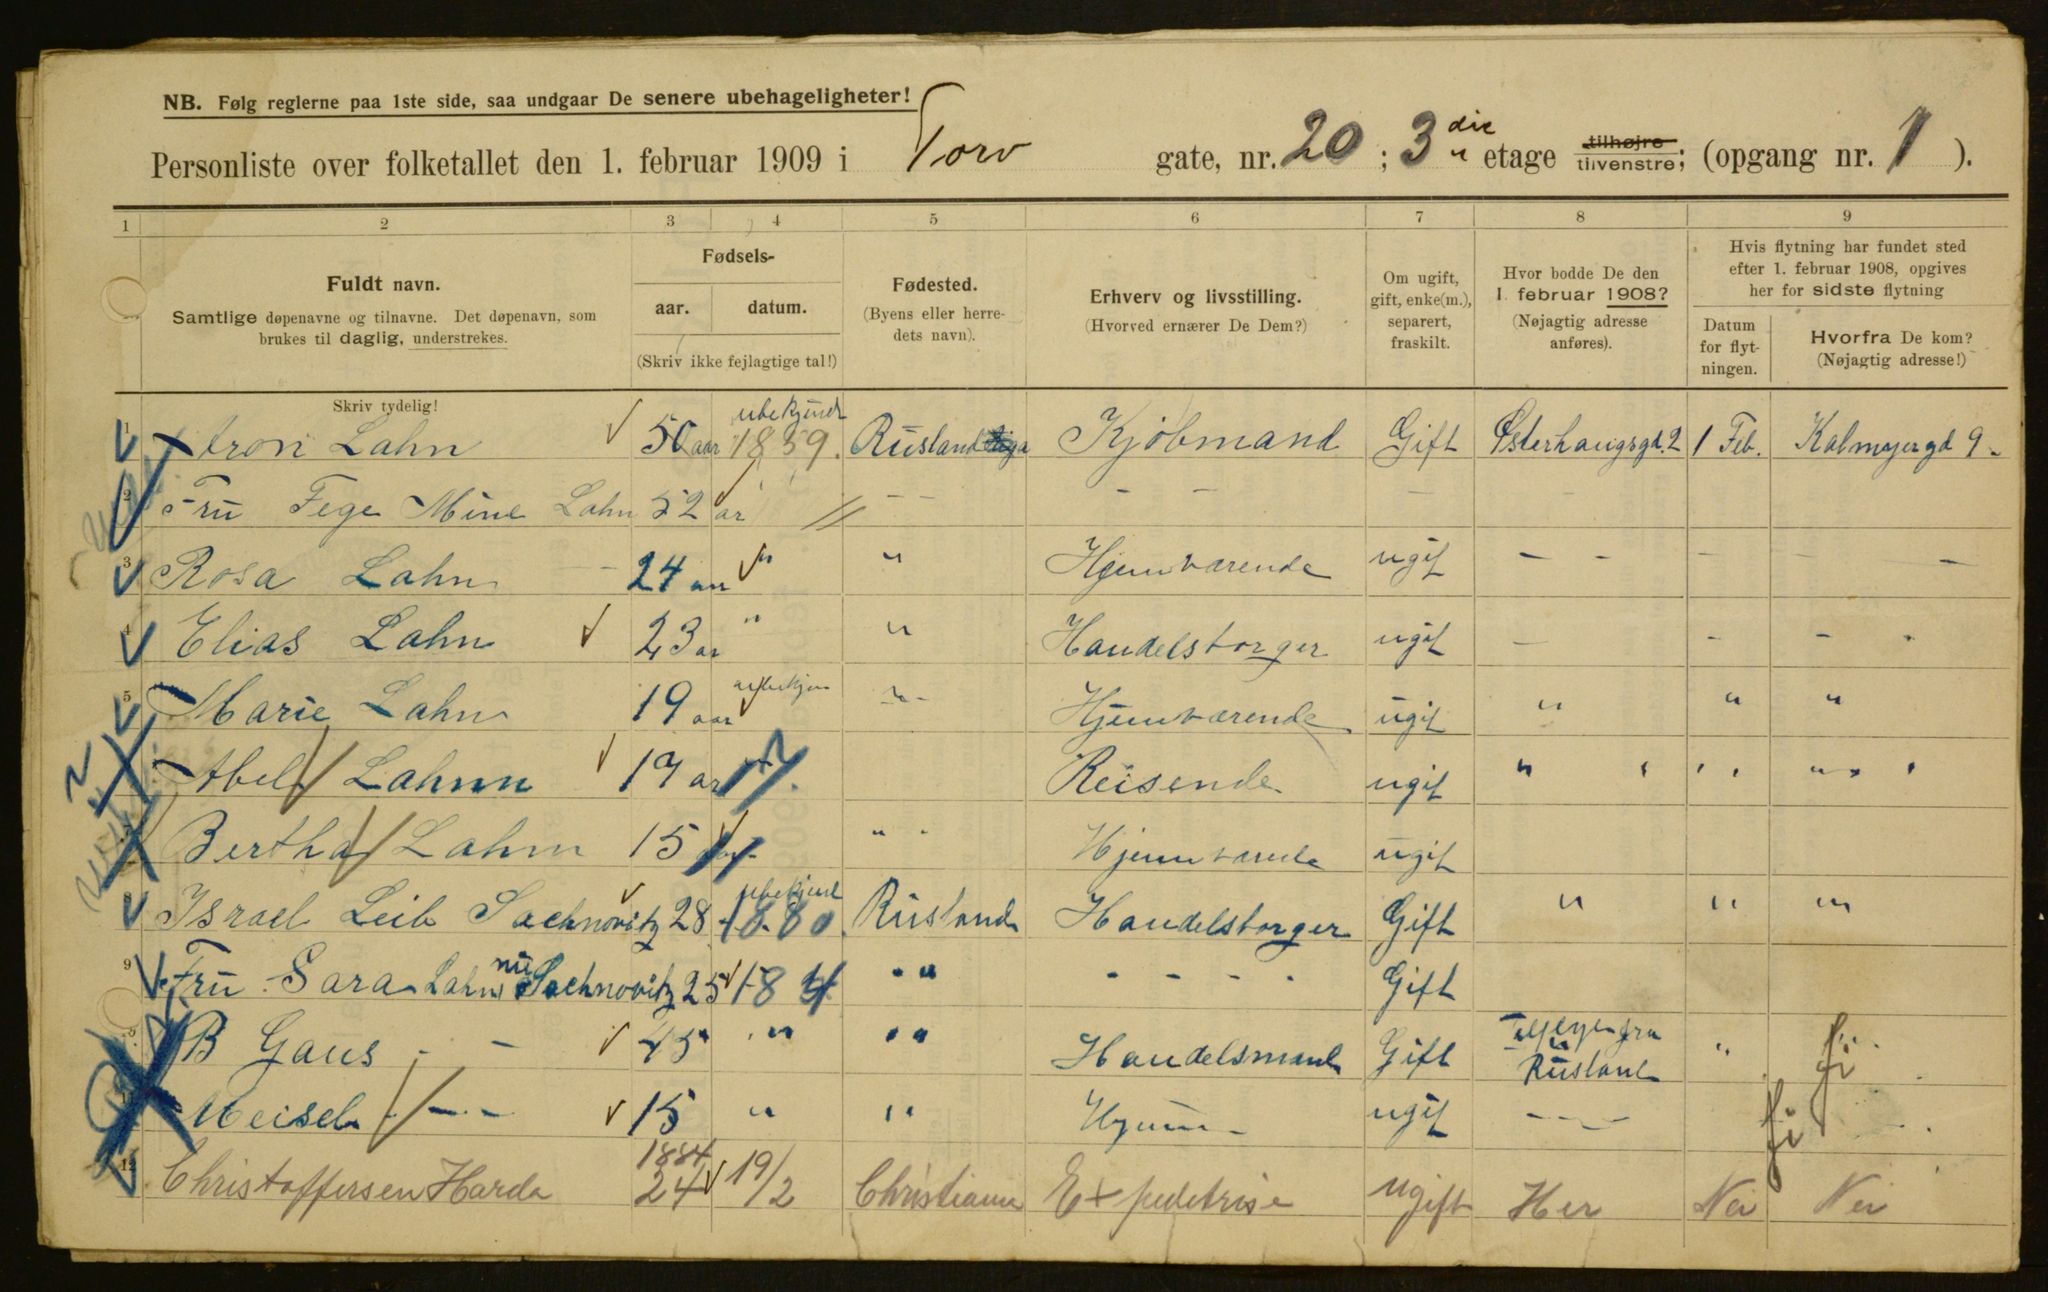 NB. Følg reglerne paa 1ste side, saa undgaar De senere ubehageligheter!
Personliste over folketallet den 1. februar 1909 i Torv gate, nr. 20 ; 3 die etage tilhøjre tilvenstre; (opgang nr. 1 ).
1 2 3 4 5 6 7 8 9
Fuldt navn.
Samtlige døpenavne og tilnavne. Det døpenavn, som
brukes til daglig, understrekes.
Skriv tydelig!
Fødsels-
aar. datum.
(Skriv ikke fejlagtige tal!)
Fødested.
(Byens eller herre-
dets navn).
Erhverv og livsstilling.
(Hvorved ernærer De Dem?)
Om ugift,
gift, enke(m.),
separert,
fraskilt.
Hvor bodde De den
1. februar 1908?
(Nøjagtig adresse
anføres).
Hvis flytning har fundet sted
efter 1. februar 1908, opgives
her for sidste flytning
Datum
for flyt-
ningen.
Hvorfra De kom?
(Nøjagtig adresse!)
1 Aron Lahn 50 aar ubekjendt 1859. Rusland Riga Kjöbmand Gift Osterhausgd. 2 1 Feb. Kalmeyergd 9 -
2 Fru Fege Mine Lahn 52 ar // - - - - - -
3 Rosa Lahn - - 24 aar " " Hjemværende ugift - - - - -
4 Elias Lahn 23 ar " " Handelsborger ugift - - - -
5 Marie Lahn 19 aar ubekjen " - Hjemværende ugift " " "
Abel Lahnn 17 ar Reisende ugift " " " " " "
Bertha Lahm 15 " " Hjemværende ugift
8 Israel Leib Sachnovitz 28 ubekjend 1880. Rusland Handelsborger Gift " " "
9 Fru Sara Lahn nu Sachnovitz 25 184 " " - - - - Gift
B Gaus - - 45 " " " Handelsmand Gift fra Rusland "
Meisel - - 15 " " Hjem - ugift - - -
12 Christoffersen Harda 1884 24 19/2 Christiania Expeditrise ugift Her Nei Nei